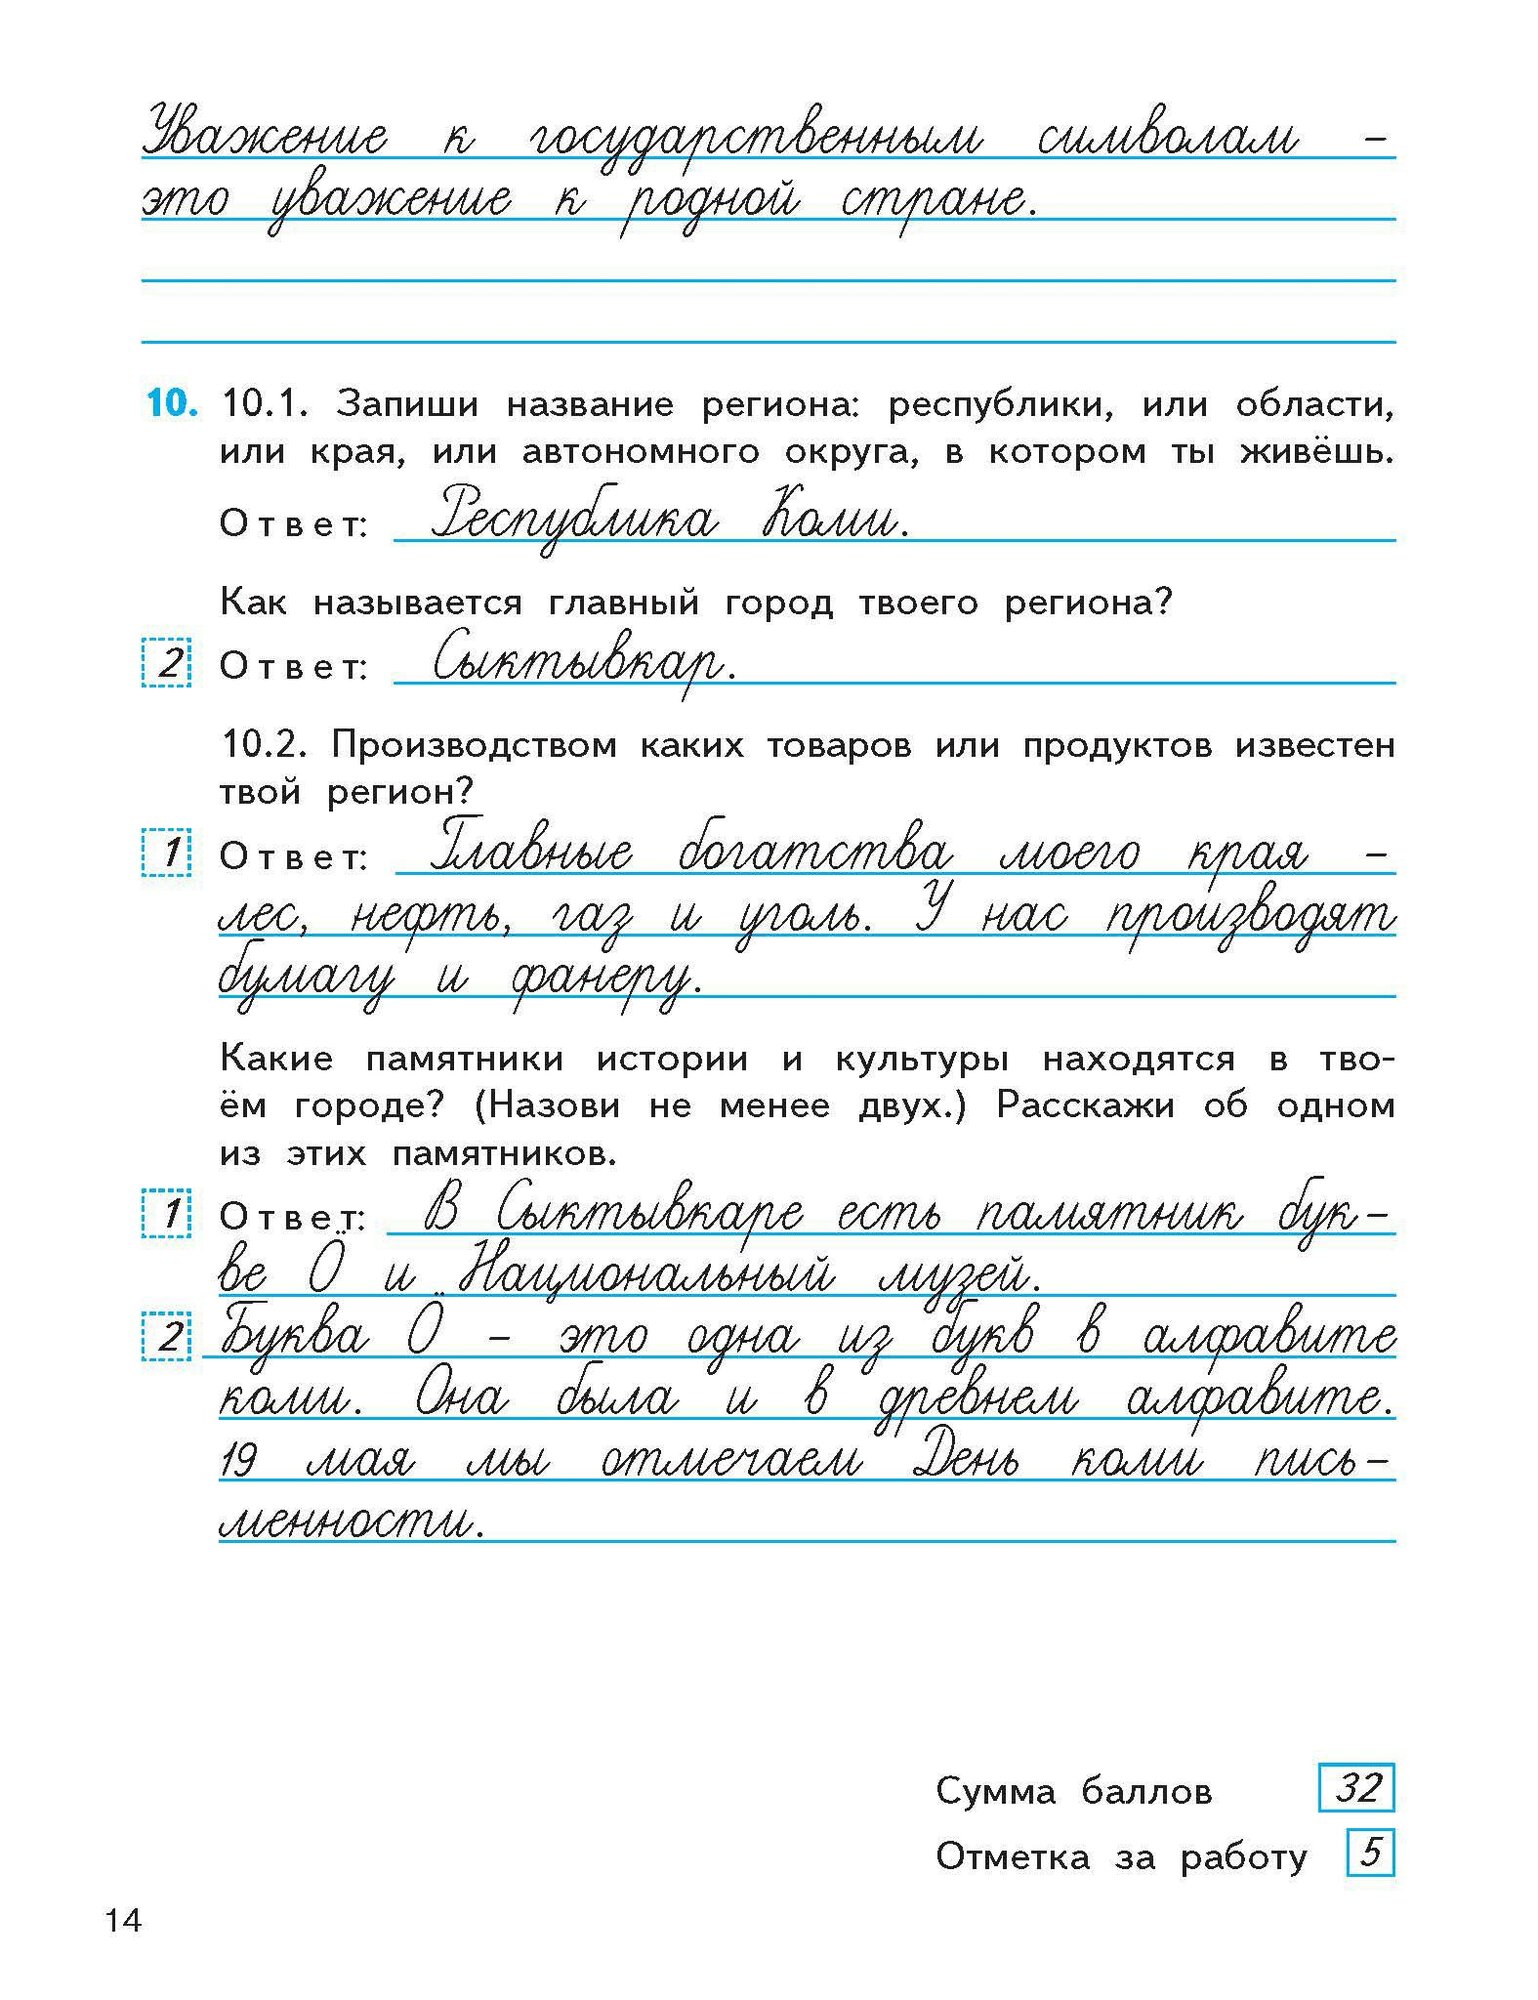 Уважение к государственным символам –
это уважение к родной стране.
10. 10.1. Запиши название региона: республики, или области,
или края, или автономного округа, в котором ты живёшь.
Ответ: Республика Коми.
Как называется главный город твоего региона?
2 Ответ: Сыктывкар.
10.2. Производством каких товаров или продуктов известен
твой регион?
1 Ответ: Главные богатства моего края –
лес, нефть, газ и уголь. У нас производят
бумагу и фанеру.
Какие памятники истории и культуры находятся в тво-
ём городе? (Назови не менее двух.) Расскажи об одном
из этих памятников.
1 Ответ: В Сыктывкаре есть памятник бук-
ве Ӧ и Национальный музей.
2 Буква Ӧ – это одна из букв в алфавите
коми. Она была и в древнем алфавите.
19 мая мы отмечаем День коми пись-
менности.
Сумма баллов 32
Отметка за работу 5
14